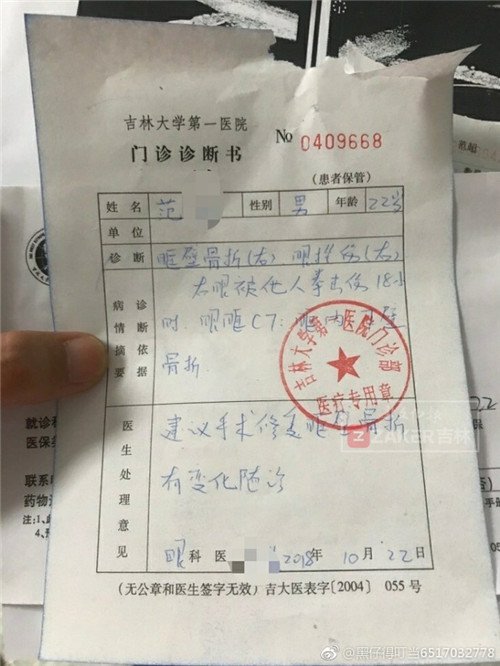 吉林大学第一医院
门诊诊断书
No 0409668
(患者保管)
姓名 范 性别 男 年龄 22岁
单位
诊断 眶壁骨折(右) 眼挫伤(右)
病情摘要 诊断依据 右眼被他人拳击伤18小
时.眼眶CT:眶内 壁
骨折.
吉林大学第一医院门诊部
医疗专用章
ZAKER吉林
医生处理意见 建议手术修复眶壁骨折
有变化随诊
眼科医 2018年10月22日
(无公章和医生签字无效)吉大医表字[2004] 055号
就诊
医保
联系
药物
注:1、
@黑仔得叮当6517032778